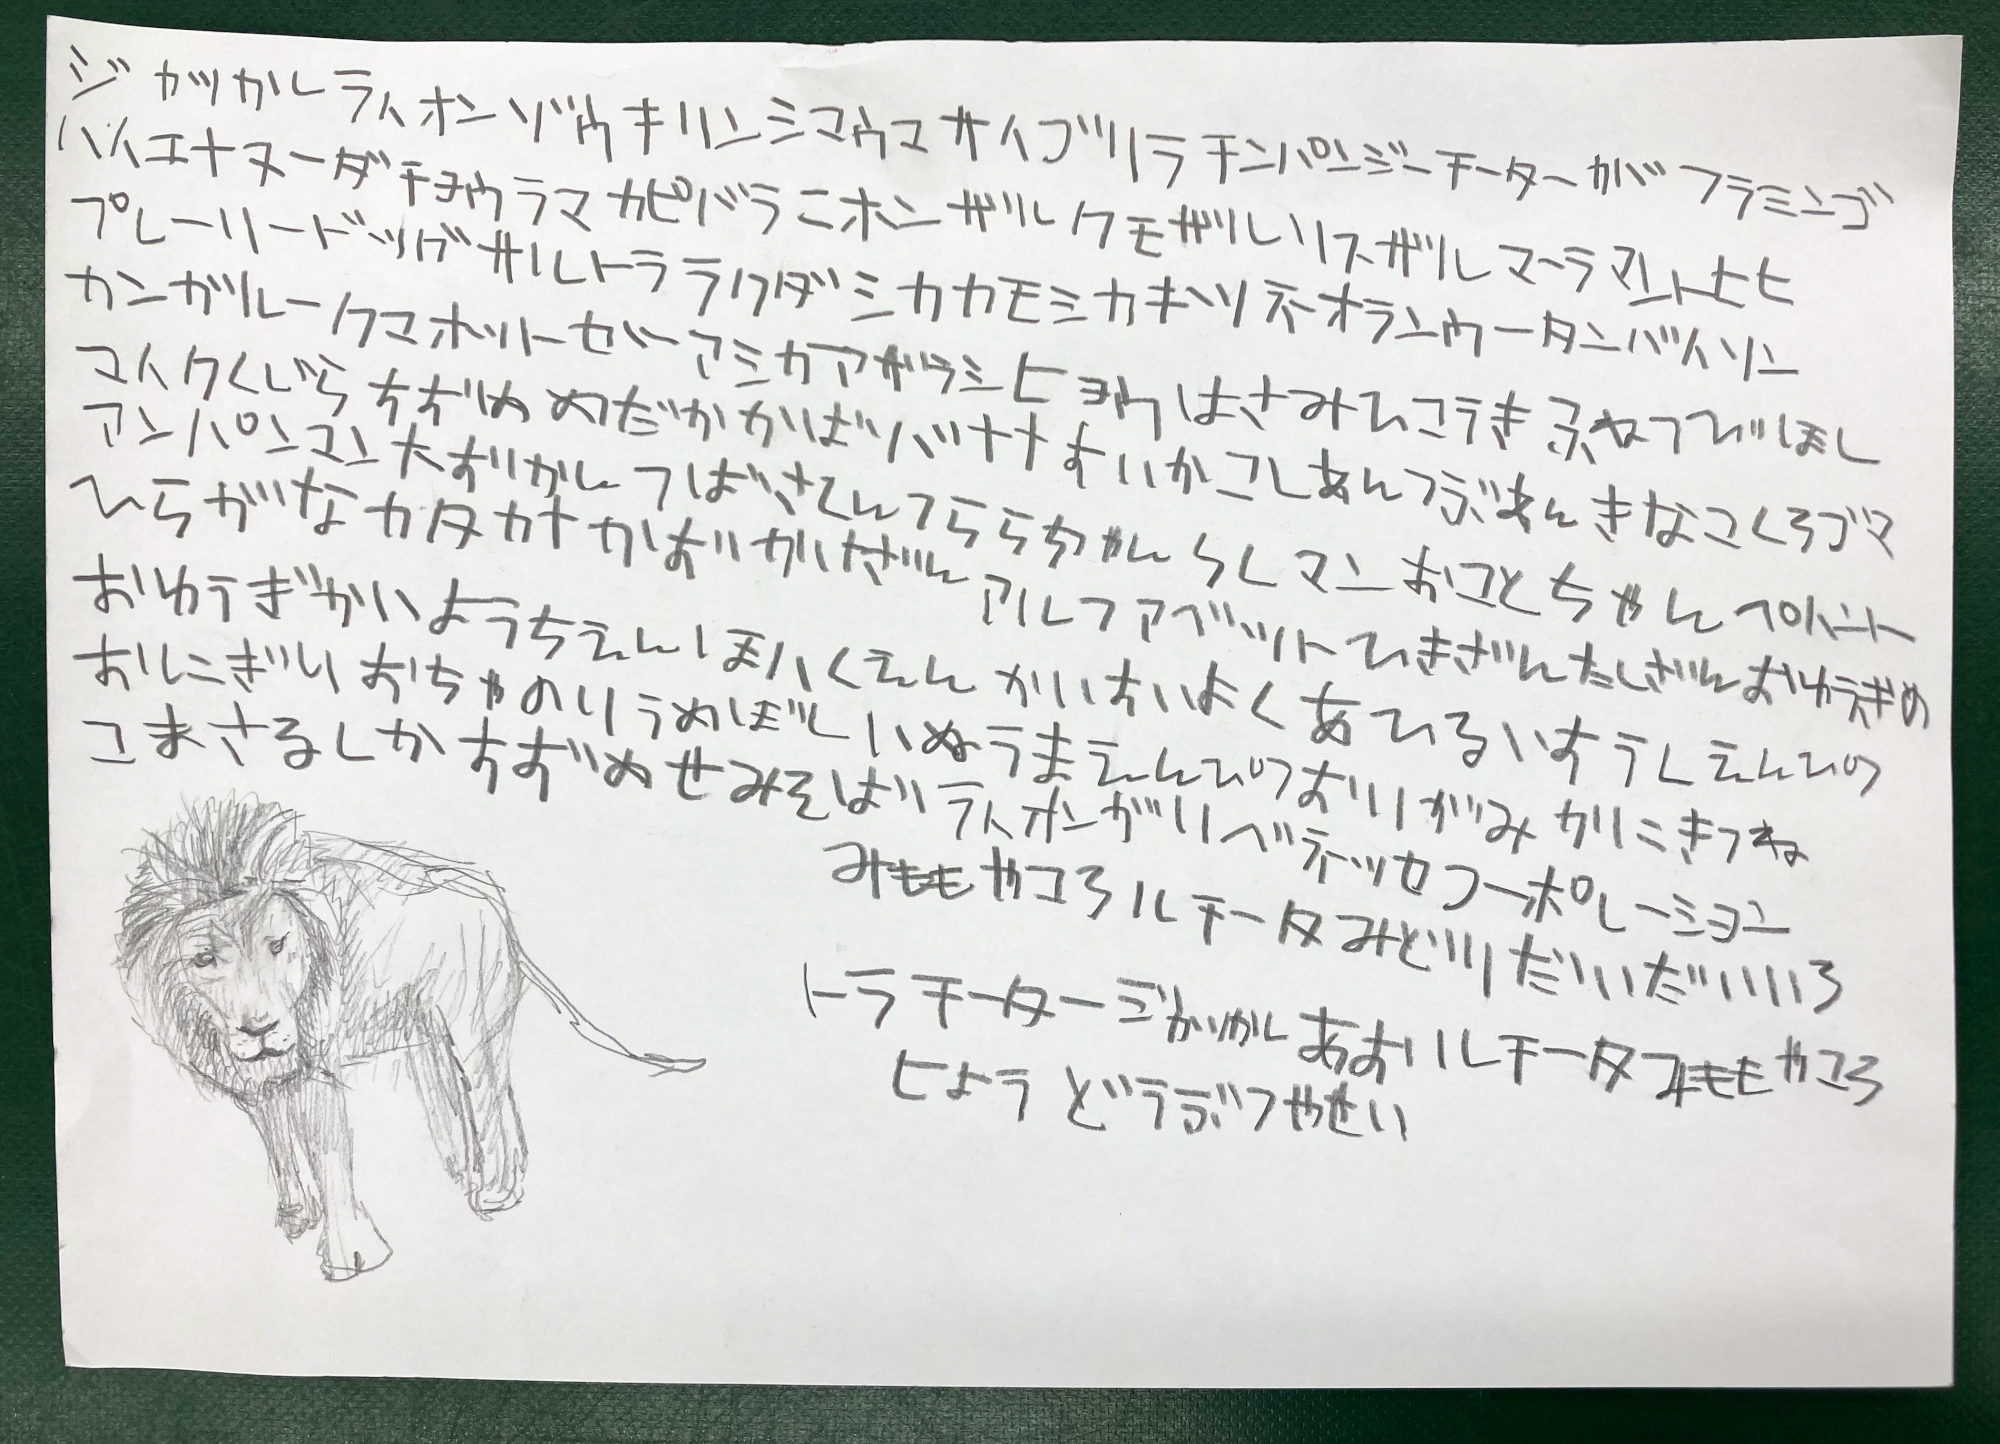 ジカッカルライオンゾウキリンシマウマサイゴリラチンパンジーチーターカバフラミンゴ
ハイエナヌーダチョウラマカピバラニホンザルクモザルリスザルマーラマントヒヒ
プレーリードッグサルトララクダシカカモシカキツネオランウータンバイソン
カンガルークマオットーセバーアシカアザラシヒョウはさみひこうき
マイクくじら めだかかばバナナすいかこしあんつぶあんきなこくろゴマ
アンパンマン つばささんうららちゃん マンおことちゃん
ひらがなカタカナ アルファベットひきざんたしざんおゆうぎ
おゆうぎかいようちえん くえん あひるいすうしえんぴつ
おにぎりおちゃのりうめぼしいぬうまえんぴつおりがみかにきつね
こまさるしか せみそばライオンがりベネッセコーポレーション
みももやころルチータみどりだいだいいろ
トラチーター あおいルチータ ももやころ
ヒようどうぶつやせい